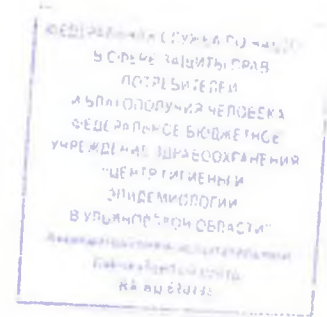 ФЕДЕРАЛЬНАЯ СЛУЖБА ПО
В СФЕРЕ ЗАЩИТЫ ПРАВ
ПОТРЕБИТЕЛЕЙ
И БЛАГОПОЛУЧИЯ ЧЕЛОВЕКА
ФЕДЕРАЛЬНОЕ БЮДЖЕТНОЕ
УЧРЕЖДЕНИЕ ЗДРАВООХРАНЕНИЯ
"ЦЕНТР ГИГИЕНЫ И
ЭПИДЕМИОЛОГИИ
В УЛЬЯНОВСКОЙ ОБЛАСТИ"